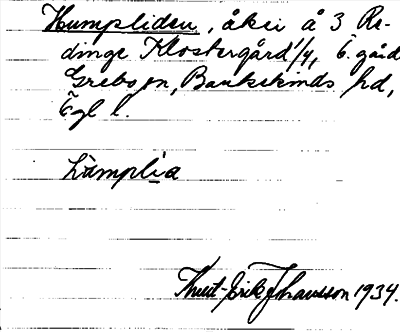 Humpliden, åker å 3 Re-
dinge Klostergård 1/4, E. gård
Grebo sn, Bankekinds hd,
Ögl l.
hùmplia
Knut-Erik Johansson 1934.